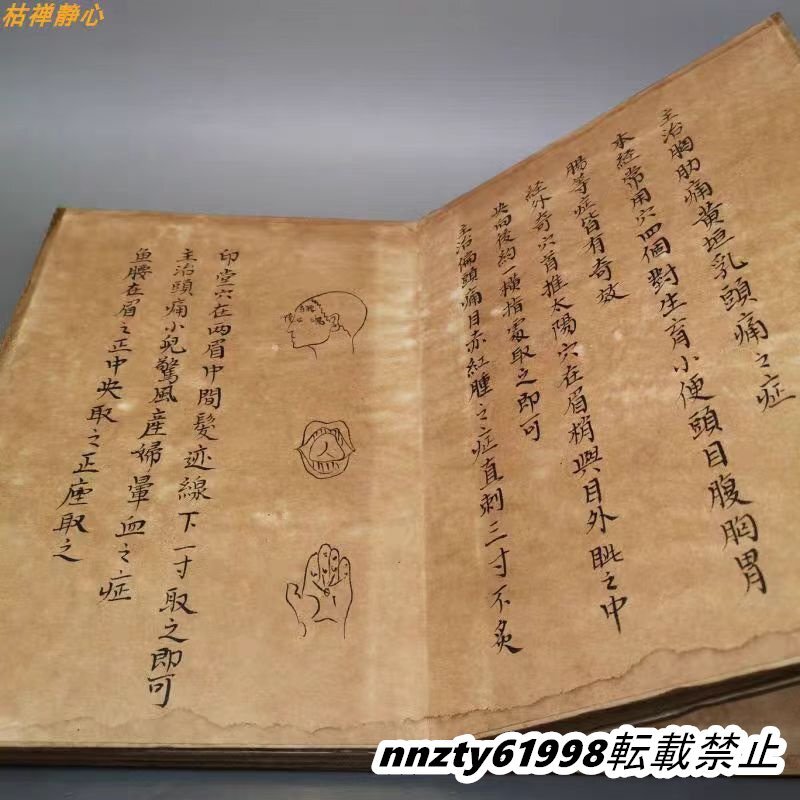 枯禅静心
主治胸肋痛黄疸乳頭痛之症
本经常用穴四個對生育小便頭目腹胸胃
腸等症皆有奇效
经外奇穴首推太陽穴在眉梢與目外眦之中
央向後约一横指處取之即可
主治偏頭痛目赤紅腫之症直刺三寸不炙
印堂穴在两眉中間髮迹線下一寸取之即可
主治頭痛小兒驚風産婦暈血之症
鱼腰在眉之正中央取之正座取之
nnzty61998転載禁止